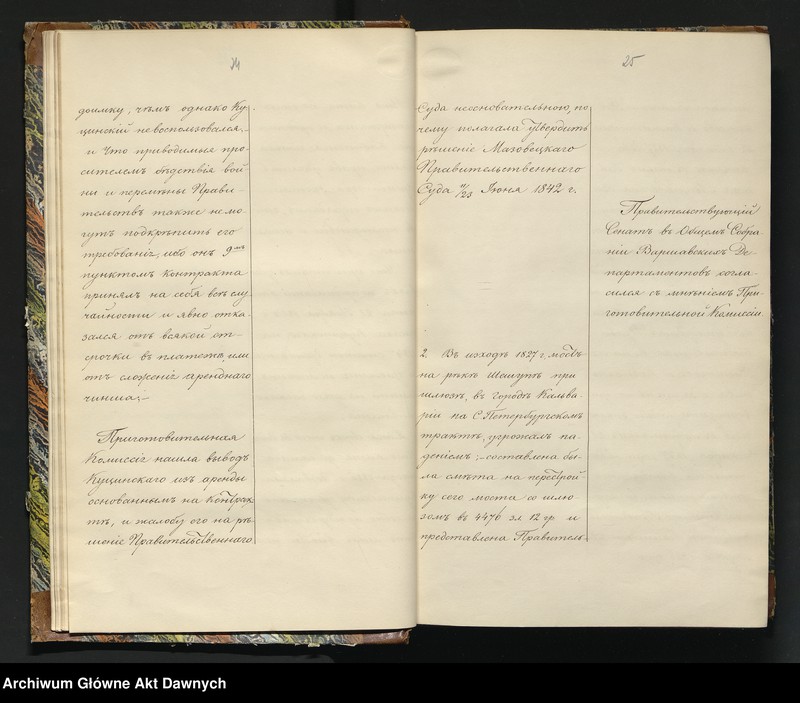 24
доимку, чѣмъ однако Ку-
цинскій невоспользовался,-
и что приводимыя про-
сителемъ бѣдствія вой
ны и перемѣны Прави-
тельствъ также немо-
гутъ подкрѣпить его
требованія, ибо онъ 9мъ
пунктомъ контракта
принялъ на себя всѣ слу
чайности и явно отка-
зался отъ всякой от-
срочки въ платежѣ, или
отъ сложенія аренднаго
чинша;-
Приготовительная
Коммиссія нашла выводъ
Куцинскаго изъ аренды
основаннымъ на контрак-
тѣ, и жалобу его на рѣ-
шеніе Правительственнаго
25
Суда неосновательною, по
чему полагала утвердить
рѣшеніе Мазовецкаго
Правительственнаго
Суда 11/23 Іюня 1842 г.
Правительствующій
Сенатъ въ Общемъ Собра
ніи Варшавскихъ Де-
партаментовъ согла-
сился съ мнѣніемъ При-
готовительной Комиссіи.
2. Въ исходѣ 1827 г. мостъ
на рѣкѣ Шешупѣ при
шлюзѣ, въ городѣ Кальва-
ріи на С Петербургскомъ
трактѣ, угрожалъ па-
деніемъ;- составлена бы-
ла смѣта на перестрой
ку сего моста со шлю-
зомъ въ 4476 зл 12 гр и
представлена Правитель-
Archiwum Główne Akt Dawnych